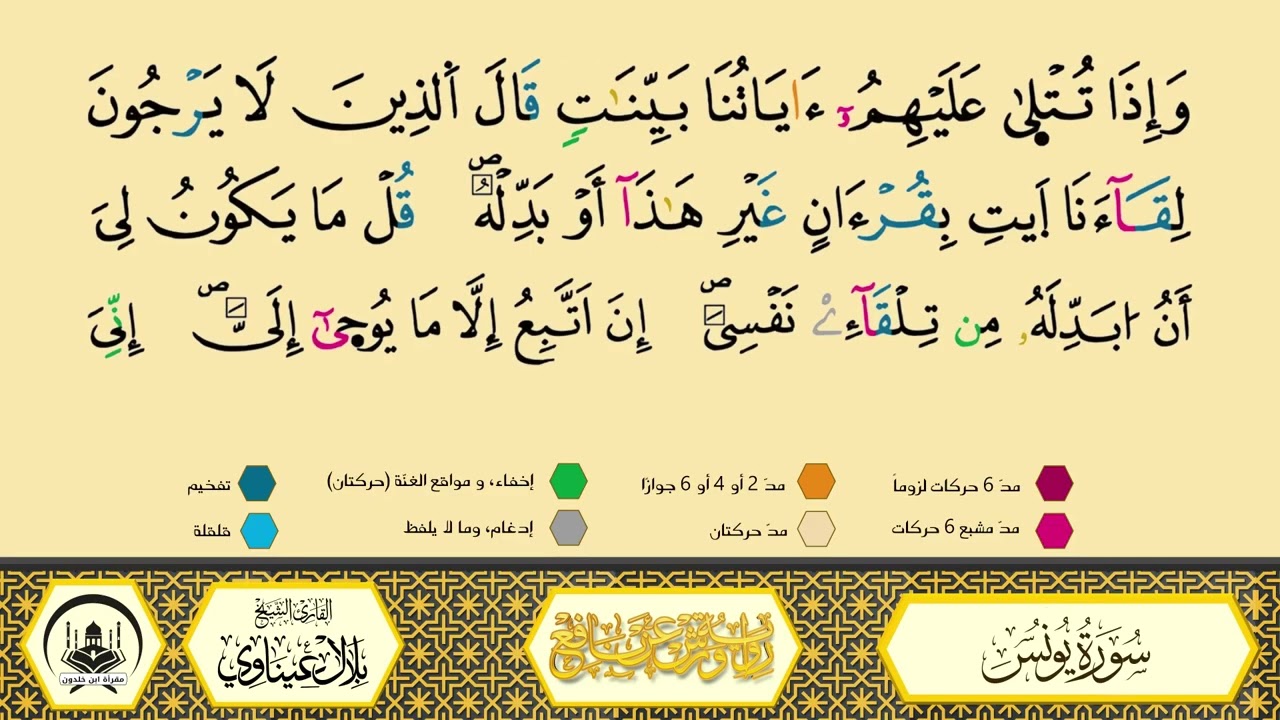 وَإِذَا تُتْلَىٰ عَلَيْهِمُۥٓ ءَايَاتُنَا بَيِّنَٰتٖ قَالَ اَ۬لذِينَ لَا يَرْجُونَ
لِقَآءَنَا اَ۪يتِ بِقُرْءَانٍ غَيْرِ هَٰذَآ أَوْ بَدِّلْهُۖ قُلْ مَا يَكُونُ لِيَ
أَنُ ا۟بَدِّلَهُۥ مِن تِلْقَآءِےْ نَفْسِيَۖ إِنَ اَتَّبِعُ إِلَّا مَا يُوحَىٰٓ إِلَيَّۖ إِنِّيَ
مدّ 6 حركات لزوماً
مدّ 2 أو 4 أو 6 جوازًا
إخفاء، و مواقع الغنّة (حركتان)
تفخيم
مدّ مشبع 6 حركات
مدّ حركتان
إدغام، وما لا يلفظ
قلقلة
سُورَةُ يُونُسَ
رواية ورش عن نافع
القارئ الشيخ
بلال عيناوي
مقرأة ابن خلدون